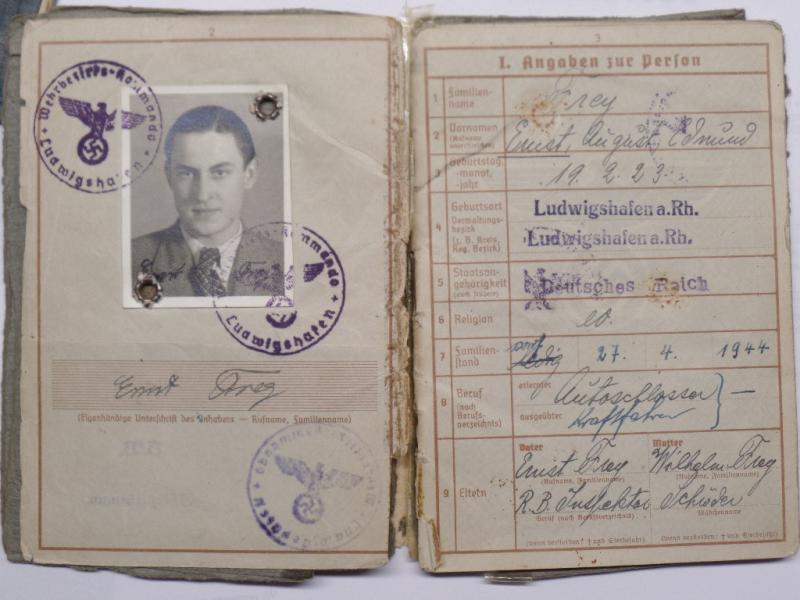 2
Wehrbezirks-Kommando
Ludwigshafen
Ludwigshafen
Ernst Frey
(Eigenhändige Unterschrift des Inhabers — Rufname, Familienname)
3
I. Angaben zur Person
1 Familien-
name
Frey
2 Vornamen
(Rufname
unterstreichen)
Ernst, August, Edmund
3 Geburtstag,
-monat,
-jahr
19. 2. 23
4 Geburtsort
Verwaltungs-
bezirk
(z. B. Kreis,
Reg. Bezirk)
Ludwigshafen a. Rh.
Ludwigshafen a. Rh.
5 Staatsan-
gehörigkeit
(auch frühere)
Deutsches Reich
6 Religion
ev.
7 Familien-
stand
ledig 27. 4. 1944
8 Beruf
(nach
Berufs-
verzeichnis)
erlernter Autoschlosser
ausgeübter Kraftfahrer
9 Eltern
Vater Mutter
Ernst Frey
(Rufname, Familienname) (Rufname, Familienname)
R.B. Inspektor
Beruf (nach Berufsverzeichnis) Mädchenname
(wenn verstorben: † und Sterbejahr) (wenn verstorben: † und Sterbejahr)